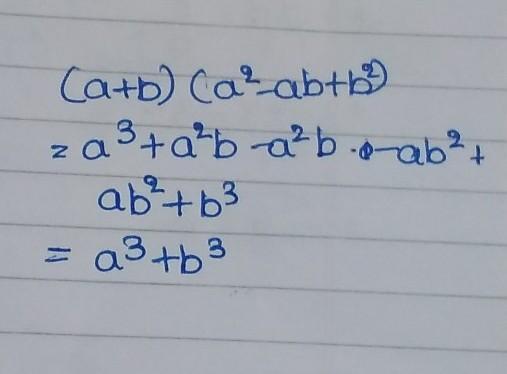 (a+b) (a²-ab+b²)
= a³+a²b -a²b -ab²+
ab²+b³
= a³+b³